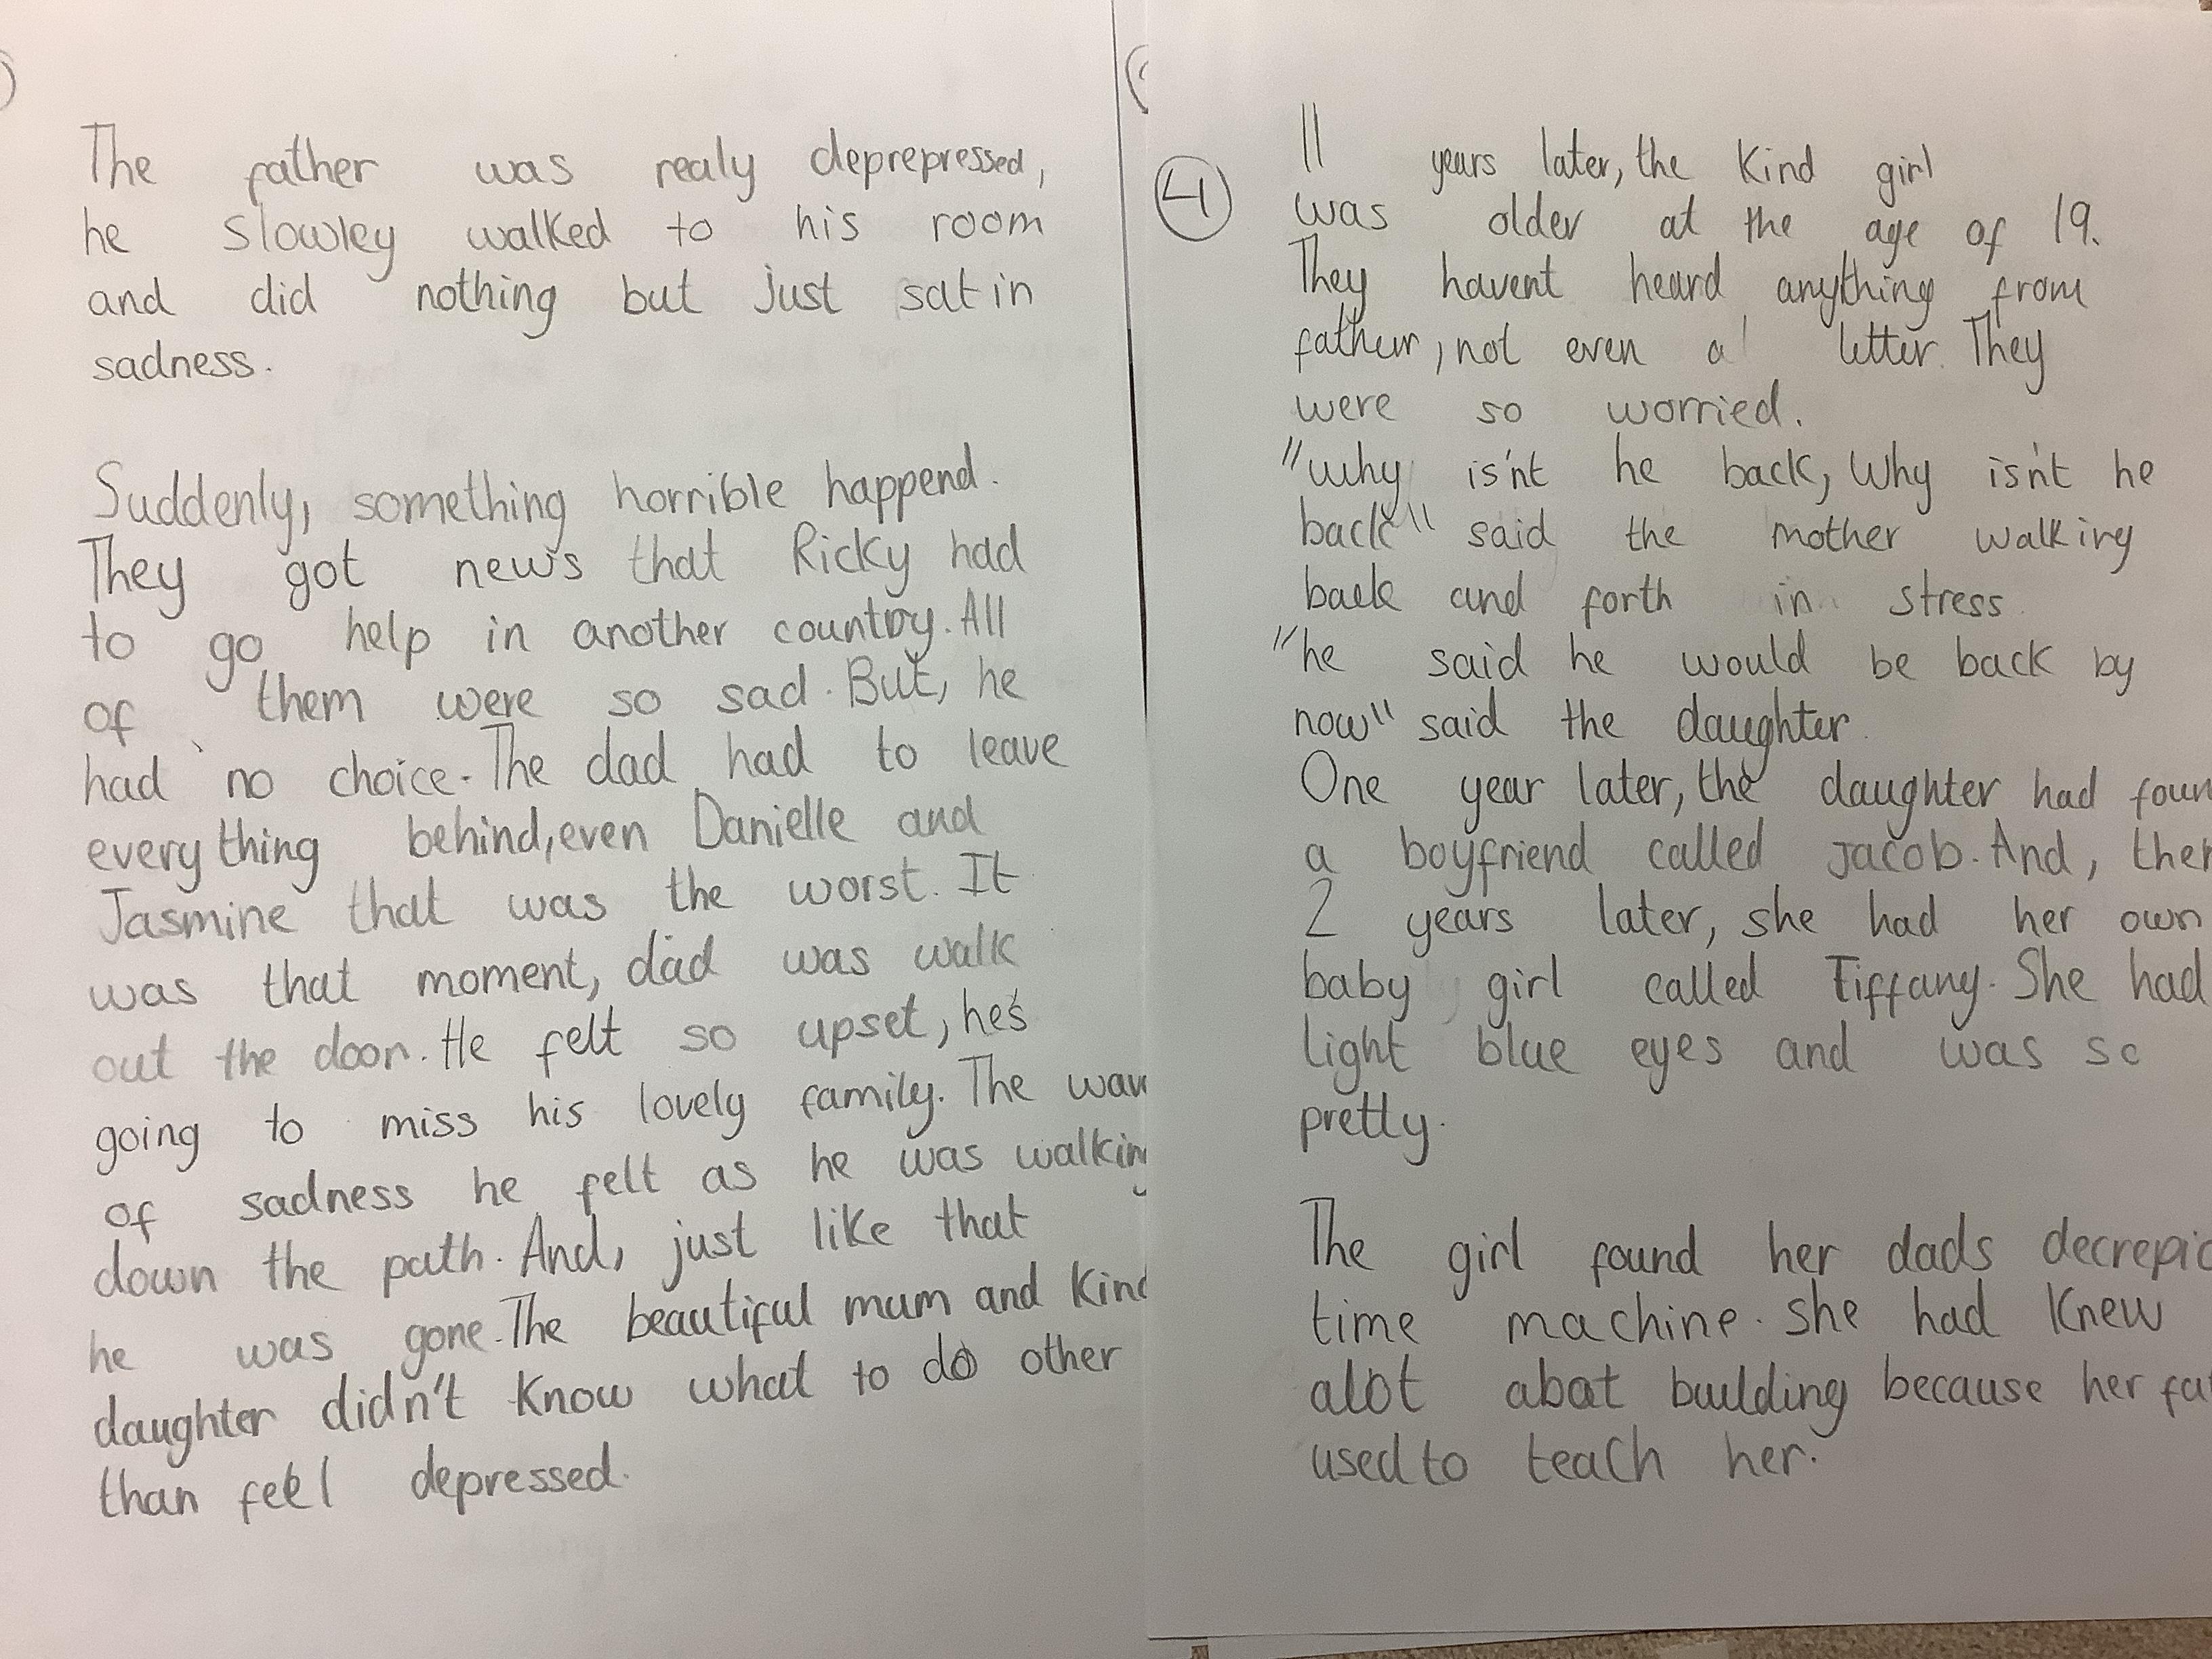 The father was realy deprepressed,
he slowley walked to his room
and did nothing but just sat in
sadness.
Suddenly, something horrible happend.
They got news that Ricky had
to go help in another country. All
of them were so sad. But, he
had no choice. The dad had to leave
everything behind, even Danielle and
Jasmine that was the worst. It
was that moment, dad was walk
out the door. He felt so upset, he's
going to miss his lovely family. The
of sadness he felt as he was walking
down the path. And, just like that
he was gone. The beautiful mum and kind
daughter didn't know what to do other
than feel depressed.
4
11 years later, the kind girl
was older at the age of 19.
They havent heard anything from
father, not even a letter. They
were so worried.
"why is'nt he back, Why is'nt he
back" said the mother walking
back and forth in stress
"he said he would be back by
now" said the daughter.
One year later, the daughter had foun
a boyfriend called jacob. And, then
2 years later, she had her own
baby girl called Tiffany. She had
light blue eyes and was so
pretty.
The girl found her dads decrepi
time machine. She had knew
alot abat building because her fat
used to teach her.